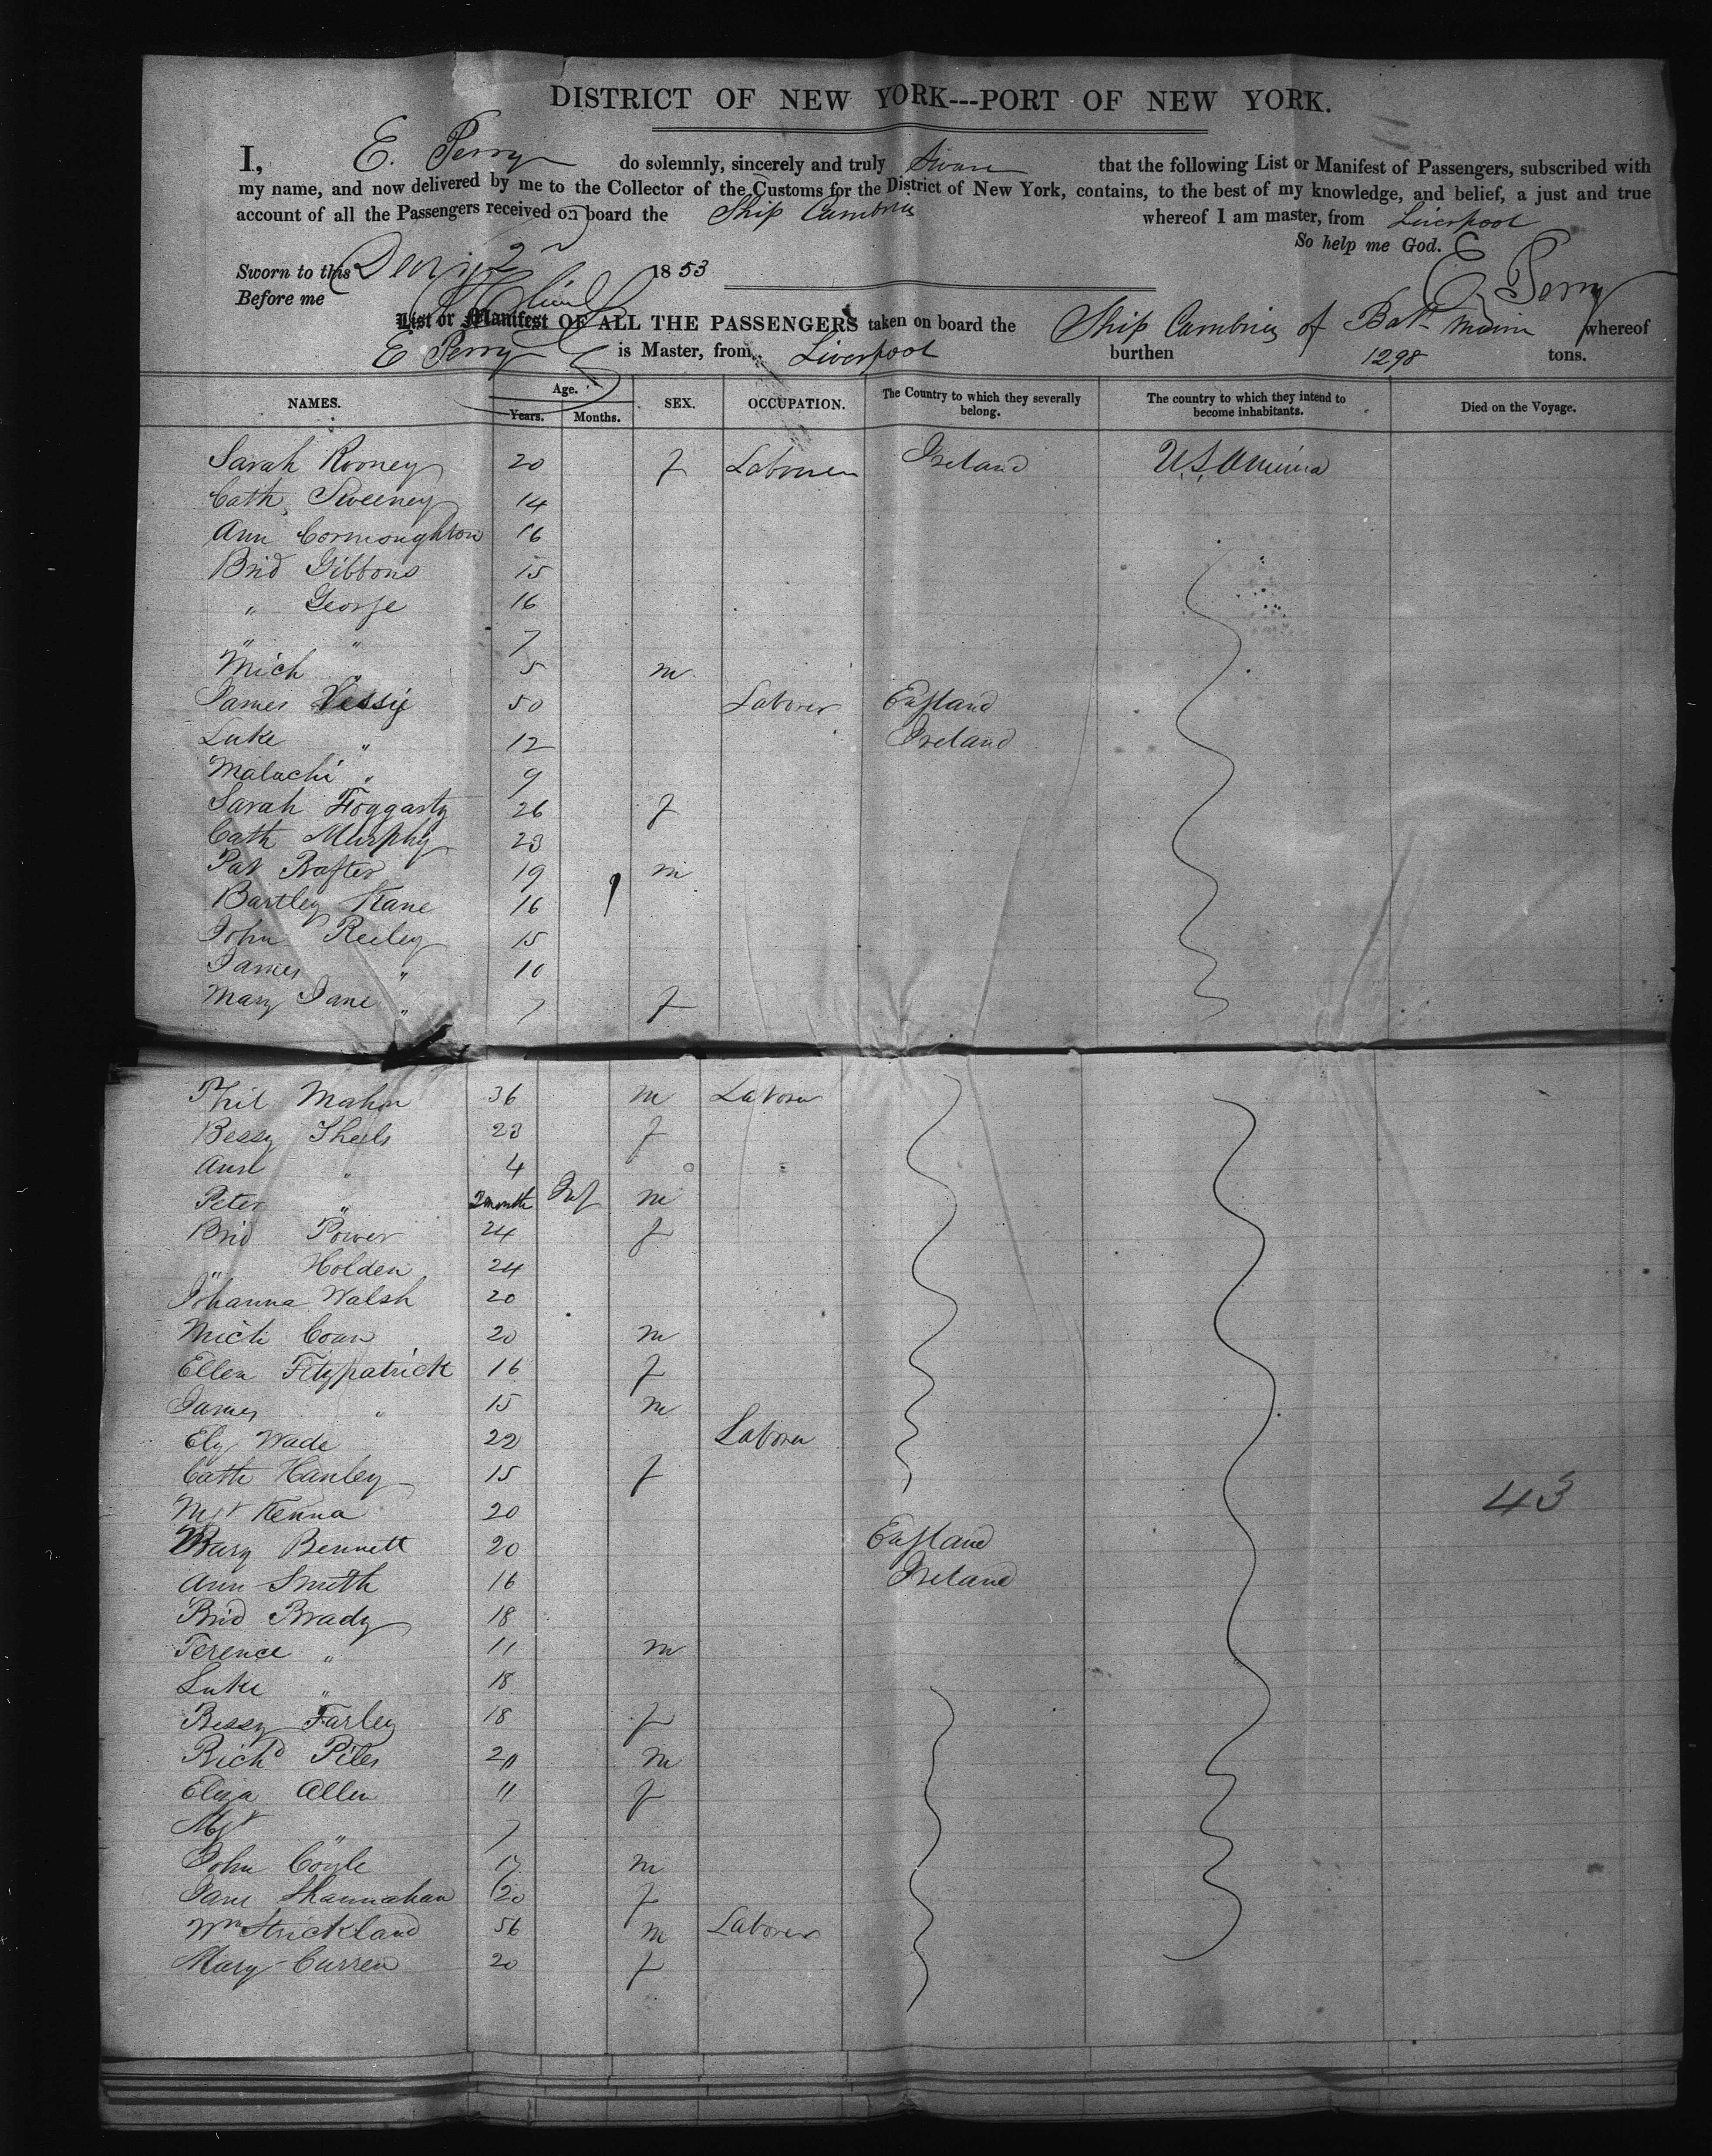 DISTRICT OF NEW YORK---PORT OF NEW YORK.
I, E. Perry do solemnly, sincerely and truly Swear that the following List or Manifest of Passengers, subscribed with
my name, and now delivered by me to the Collector of the Customs for the District of New York, contains, to the best of my knowledge, and belief, a just and true
account of all the Passengers received on board the Ship Cumbria whereof I am master, from Liverpool
So help me God. E Perry
Sworn to this 2 1853
Before me
List or Manifest OF ALL THE PASSENGERS taken on board the Ship Cumbria of Bath Maine whereof
E Perry is Master, from Liverpool burthen 1298 tons.
NAMES. Age. Years. Months. SEX. OCCUPATION. The Country to which they severally belong. The country to which they intend to become inhabitants. Died on the Voyage.
Sarah Rooney 20 f Ireland U.S. America
Cath Sweeney 14
Ann 16
Brid Gibbons 15
" George 16
" " 7
Mich " 5 m
James Vessy 50 Laborer England
Luke " 12 Ireland
Malachi " 9
Sarah Foggarty 26 f
Cath Murphy 23
Pat Rafter 19 m
Bartley Kane 16
John Reiley 15
James " 10
Mary Jane " 7 f
Phil Mahon 36 m Laborer
Bessy Sheils 23 f
Ann " 4
Peter " 2 month Inf m
Brid Power 24 f
" Holden 24
Johanna Walsh 20
Mich Coan 20 m
Ellen Fitzpatrick 16 f
James " 15 m
Ely Wade 22 Laborer
Cath Hanley 15 f
Mgt Kenna 20
Mary Bennett 20 England
Ann Smith 16 Ireland
Brid Brady 18
Terence " 11 m
Luke " 18
Bessy Farley 18 f
Richd Piles 20 m
Eliza Allen 11 f
Mgt " 7
John Coyle 17 m
Jane Shannahan 20 f
Wm Strickland 56 m Laborer
Mary Curren 20 f
43